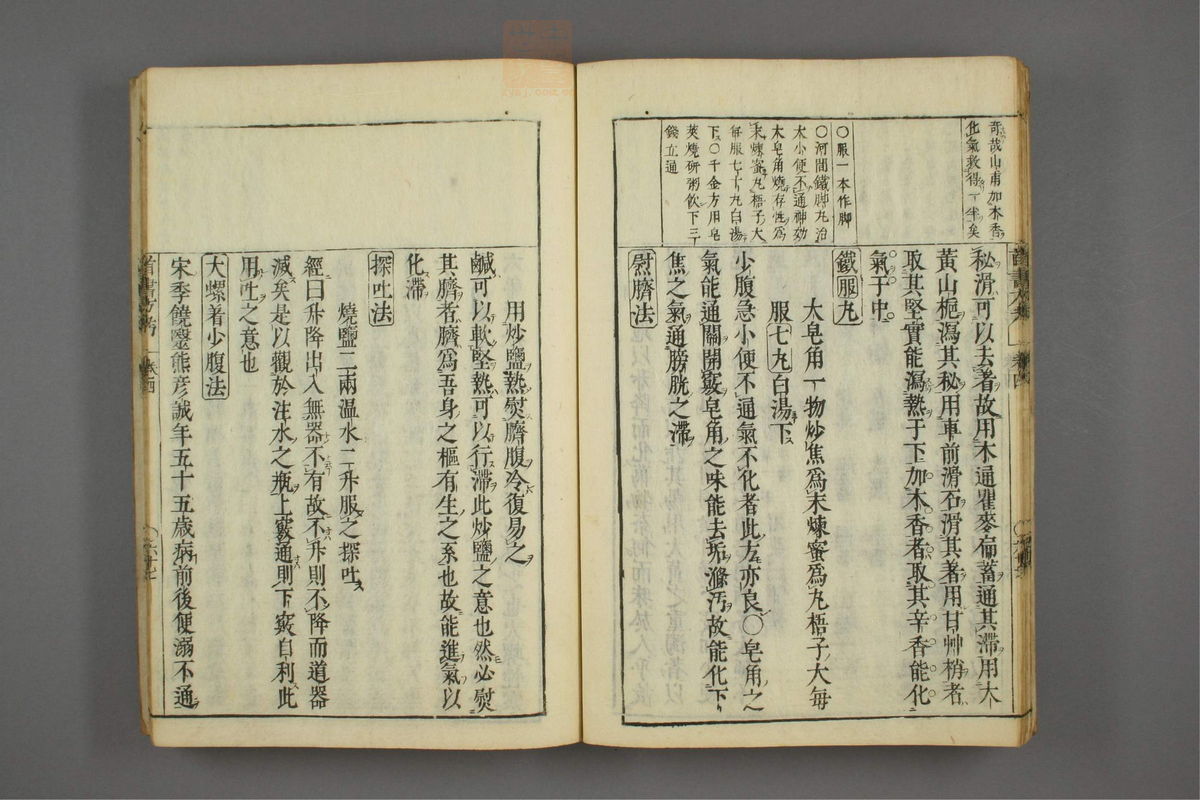 奇哉山甫加木香
化氣救得一半矣
〇服一本作脚
〇河間鐵脚丸治
大小便不通神効
大皂角燒存性爲
末煉蜜丸梧子大
每服七十丸白湯
下〇千金方用皂
莢燒研粥飲下三
錢立通
秘滑可以去著故用木通瞿麥扁蓄通其滯用大
黄山梔瀉其秘用車前滑石滑其著用甘艸梢者
取其堅實能瀉熱于下加木香者取其辛香能化
氣于中
鐵服丸
大皂角一物炒焦爲末煉蜜爲丸梧子大每
服七丸白湯下
少腹急小便不通氣不化者此方亦良〇皂角之
氣能通關開竅皂角之味能去垢滌汚故能化下
焦之氣通膀胱之滯
熨臍法
用炒鹽熱熨臍腹冷復易之
鹹可以軟堅熱可以行滯此炒鹽之意也然必熨
其臍者臍爲吾身之樞有生之系也故能進氣以
化滯
探吐法
燒鹽二兩温水二升服之探吐
經曰升降出入無器不有故不升則不降而道器
滅矣是以觀於注水之瓶上竅通則下竅自利此
用吐之意也
大螺着少腹法
宋季饒毉熊彦誠年五十五歳病前後便溺不通
首書方考
卷四
六十七